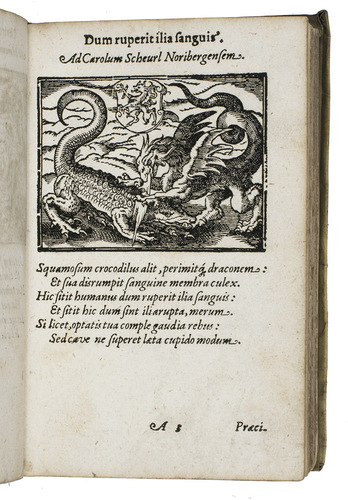 Dum ruperit ilia sanguis.
Ad Carolum Scheurl Noribergensem.
Squamosum crocodilus alit, perimitq́; draconem:
Et sua disrumpit sanguine membra culex.
Hic sitit humanus dum ruperit ilia sanguis:
Et sitit hic dum sint ilia rupta, merum.
Si licet, optatis tua comple gaudia rebus:
Sed cave ne superet læta cupido modum.
A 3 Præci-